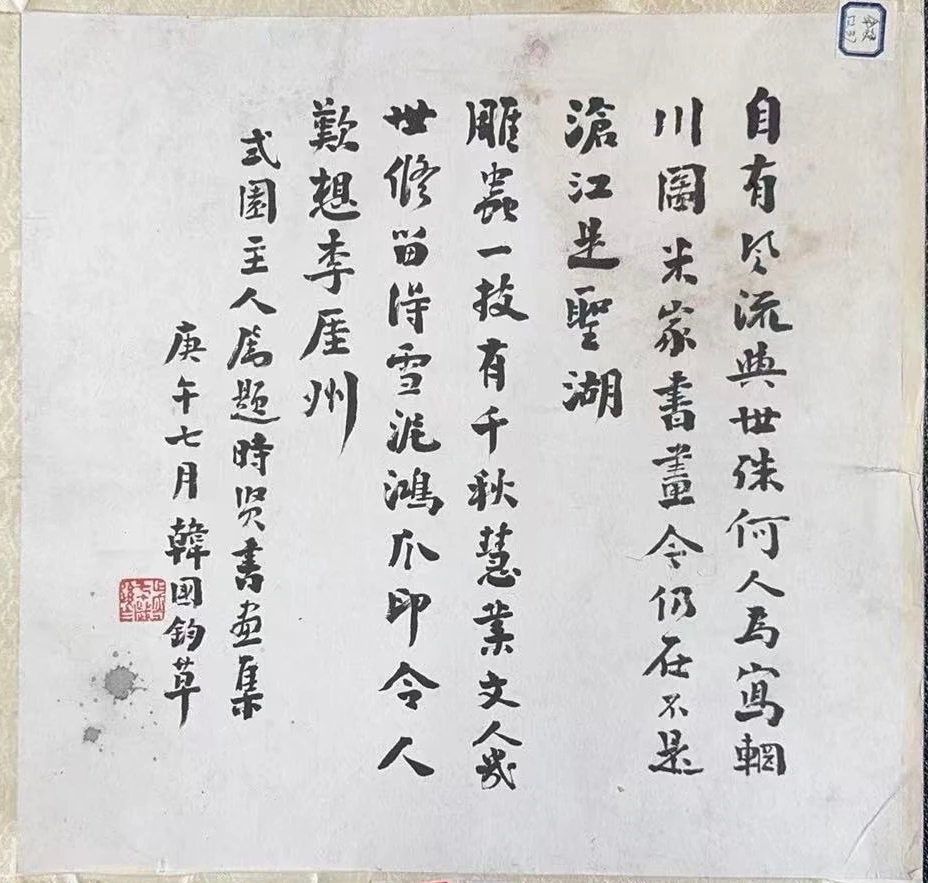 自有風流與世殊何人為寫輞
川圖米家書畫今仍在不是
滄江是聖湖
雕蟲一技有千秋慧業文人幾
世修留得雪泥鴻爪印令人
歎想李厓州
式園主人屬題時賢書画集
庚午七月韓國鈞草